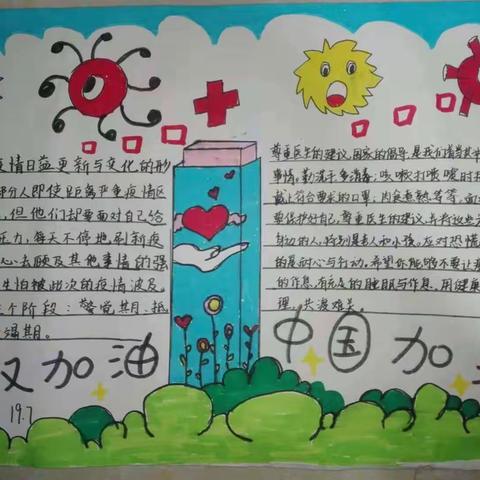 疫情日益更新与变化的形
部分人即使距离严重疫情区
，但他们却要面对自己给
压力，每天不停地刷新疫
心去顾及其他事情的强
生怕被此次的疫情波及。
三个阶段：警觉期、抵
竭期。
汉加油
19.7
尊重医生的建议，国家的倡导，是我们请当其中
事情，勤洗手多消毒，咳嗽打喷嚏时捂
戴上符合要求的口罩，肉食煮熟等等，面
要保护好自己，尊重医生的建议，去将这些
身边的人，特别是老人和小孩。应对恐慌
的是耐心与行动，希望你能够不要让疫
的作息，有充足的睡眠与作息，用健康
理，共渡难关。
中国加